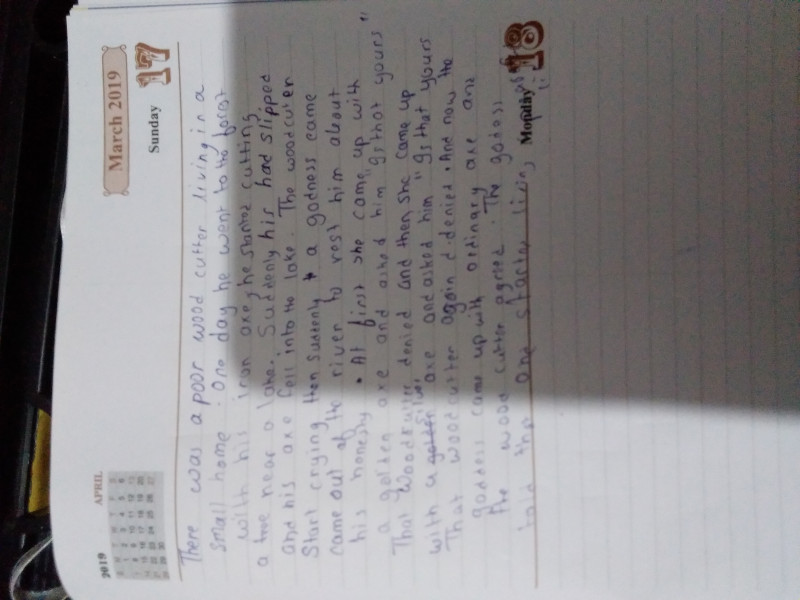 2019 APRIL
March 2019
Sunday 17
There was a poor wood cutter living in a
small home . One day he went to the forest
with his iron axe, he started cutting
a tree near a lake. Suddenly his had slipped
and his axe fell into the lake . The woodcuter
Start crying then suddenly a godness came
came out of the river to rest him about
his honesty . At first she came up with
a golden axe and asked him "Is that yours"
That woodcutter denied and then, she came up
with a golden silver axe and asked him "Is that yours
That woodcutter again d.denied . And now the
goddess came up with ordinary axe and
the wood cutter agreed . The godess
and starten living
Monday 18